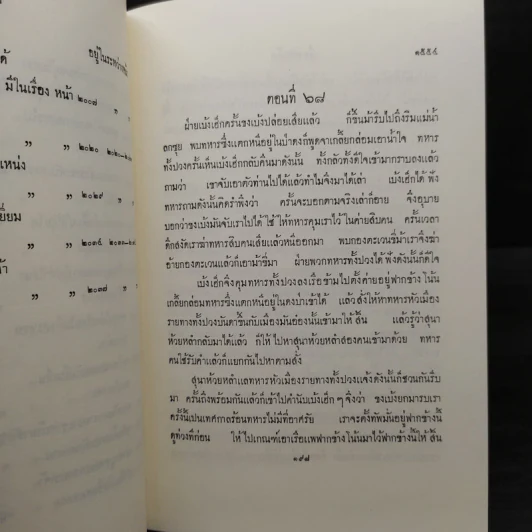 ด้
อยู่ในระหว่าง
มีในเรื่อง หน้า ๒๐๐๗ " "
" " ๒๐๒๐ ๒๐๒๑-๒๐๒
แหน่ง
" " ๒๐๒๙ "
ยี่ยม
" " ๒๐๓๔ ๒๐๓๑-๒๐๓
ค้า
" " ๒๐๓๗ "
๑๕๕๔
ตอนที่ ๖๘
ฝ่ายเบ้งเฮ็กครั้นขงเบ้งปล่อยเสียแล้ว ก็ขึ้นม้ารีบไปถึงริมแม่น้ำ
ลกซุย พบทหารซึ่งแตกหนีอยู่ในป่าดงก็พูดจาเกลี้ยกล่อมเอาน้ำใจ ทหาร
ทั้งปวงครั้นเห็นเบ้งเฮ็กกลับคืนมาดังนั้น ทั้งกลัวทั้งดีใจเข้ามากราบลงแล้ว
ถามว่า เขาจับเอาตัวท่านไปได้แล้วทำไมจึงมาได้เล่า เบ้งเฮ็กได้ฟัง
ทหารถามดังนั้นคิดรำพึงว่า ครั้นจะบอกตามจริงเล่าก็อาย จึงอุบาย
บอกว่าขงเบ้งมันจับเราไปได้ ใช้ให้ทหารคุมเราไว้ในค่ายสิบคน ครั้นเวลา
ดึกสงัดเราฆ่าทหารสิบคนเสียแล้วหนีออกมา พบกองตะเวนขี่ม้าเราจึงฆ่า
อ้ายกองตะเวนแล้วก็เอาม้าขี่มา ฝ่ายพวกทหารทั้งปวงได้ฟังดังนั้นก็ดีใจ
เบ้งเฮ็กจึงคุมทหารทั้งปวงลงเรือข้ามไปตั้งค่ายอยู่ฟากข้างโน้น
เกลี้ยกล่อมทหารซึ่งแตกหนีอยู่ในดงป่าเข้าได้ แล้วสั่งให้หาทหารหัวเมือง
รายทางทั้งปวงบันดาขึ้นกับเมืองมันอ๋องนั้นเข้ามาให้สิ้น แล้วรู้ว่าสุนา
ห้วยหลำกลับมาได้แล้ว ก็ให้ไปหาสุนาห้วยหลำสองคนเข้ามาด้วย ทหาร
คนใช้รับคำแล้วก็แยกกันไปหาตามสั่ง
สุนาห้วยหลำแลทหารหัวเมืองรายทางทั้งปวงแจ้งดังนั้นก็ชวนกันรีบ
มา ครั้นถึงพร้อมกันแล้วก็เข้าไปคำนับเบ้งเฮ็ก ๆ จึงว่า ขงเบ้งยกมารบเรา
ครั้งนี้เปนเทศกาลร้อนทหารไม่มีที่อาศรัย เราจะตั้งทัพมั่นอยู่ฟากข้างนี้
ดูท่วงทีก่อน ให้ไปเกณฑ์เอาเรือแพฟากข้างโน้นมาไว้ฟากข้างนี้ให้สิ้น
๑๙๗